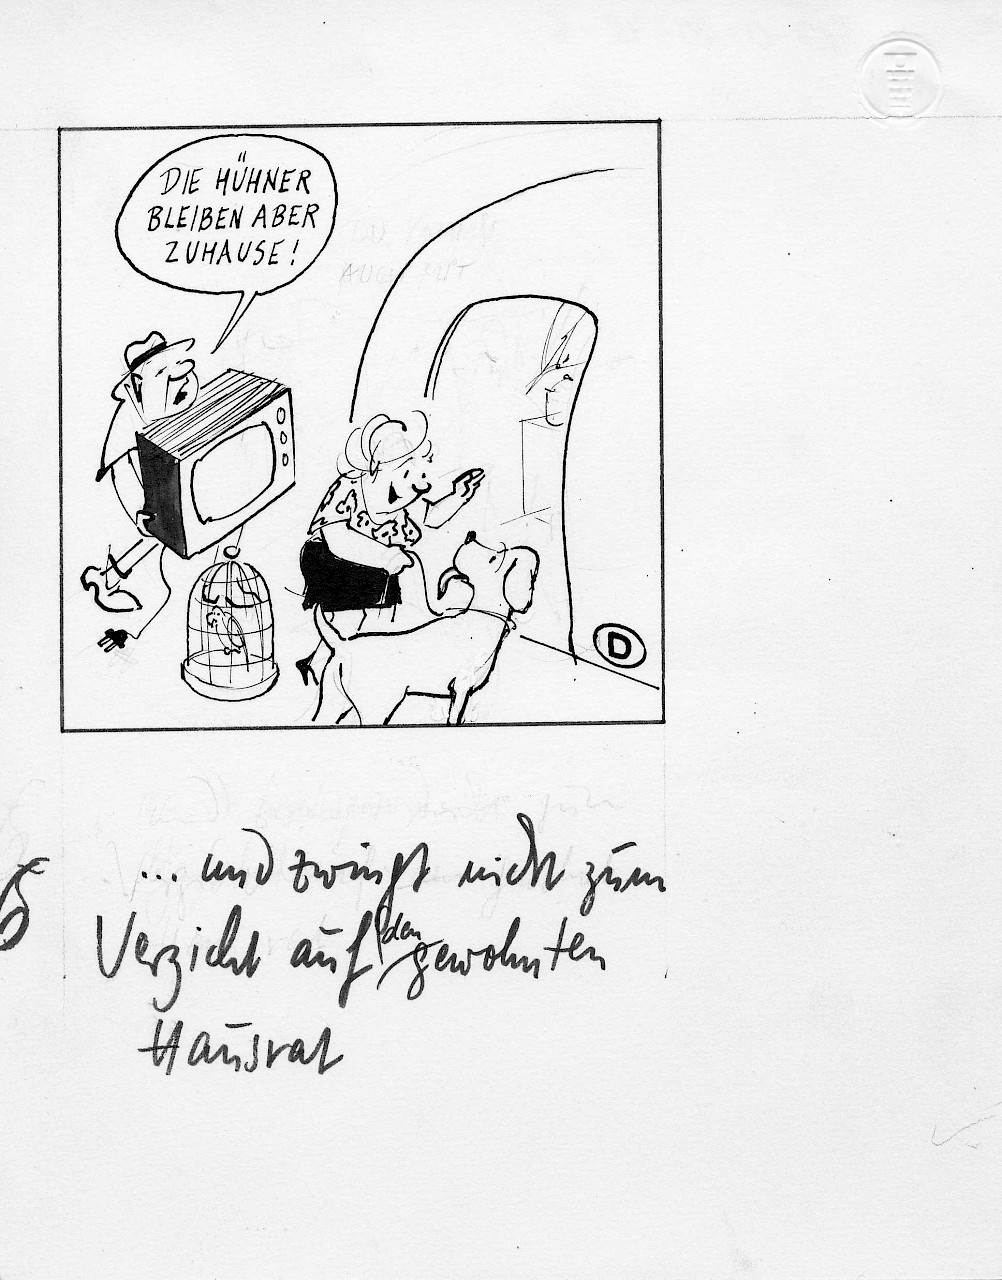 DIE HÜHNER
BLEIBEN ABER
ZUHAUSE!
D
... und zwingt nicht zum
Verzicht auf den gewohnten
Hausrat